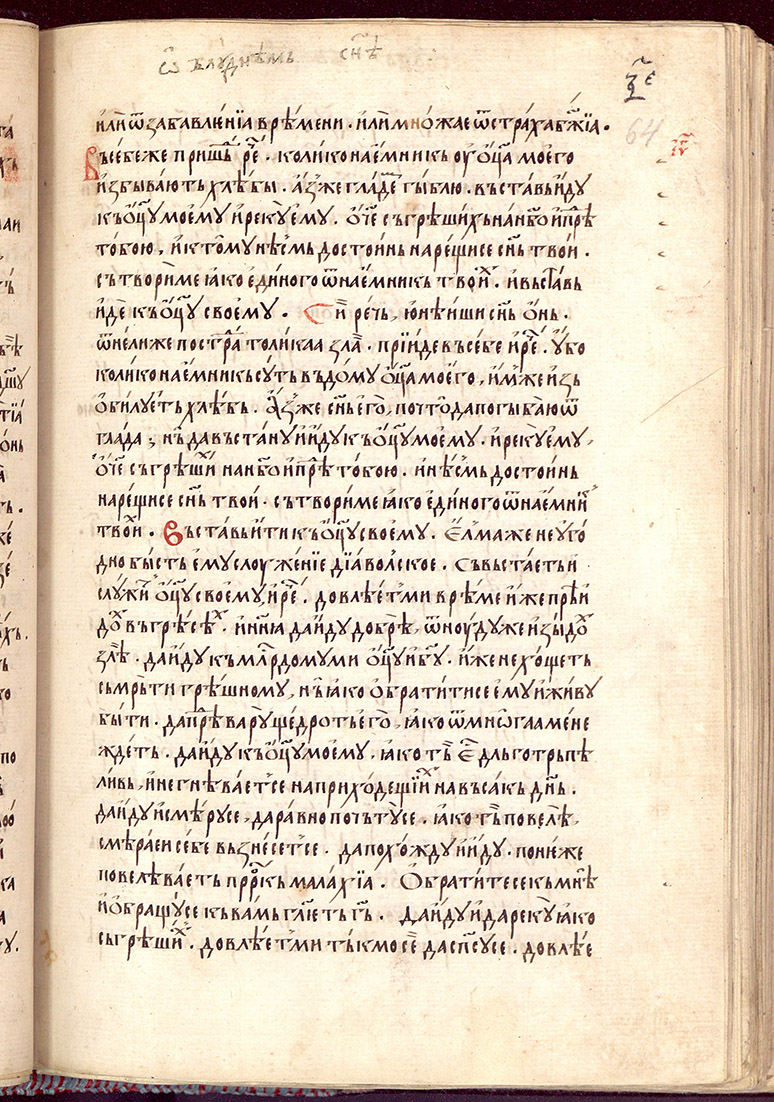 ѡ҃ блꙋднѣмь сн҃ѣ
ѯ҃е
64
или҆ ѿ забавлѥ́нїа врѣ́мени · и҆лѝ мно́жае ѿ стра́ха бж҃їа ·
Въ себе́ же пришь́д рⷱ҇е · колико нає́мникь ᲂу҆ ѻ҆ц҃а моего
и҆збыва́ють хлѣ́бы · а҆́зже гла́дѡⷨ гы́блю · въста́вь и҆дꙋ
къ ѻ҆ц҃ꙋ моемꙋ и҆ рекꙋ̀ є҆мꙋ · ѻ҆ч҃е съгрѣ́шихь на нб҃о и҆ прѣⷣ
тобою, и҆ к томꙋ нѣ́смь достоинь нарещисе сн҃ь твои ·
сътворѝ ме ꙗко є҆диного ѿ нає́мникь твоиⷯ · и҆ въста́вь
и҆́де къ ѻ҆ц҃ꙋ своемꙋ · Сїѐ рѣчь, ю҆нѣ́иши сн҃ь ѡ҆́нь ·
ѿне́лиже постраⷣ толика ꙗ зла̀ · прїи́де въ себе и҆ рⷱ҇е · ᲂу҆бо
колико нає́мникь сꙋ́ть въ домꙋ ѻ҆ц҃а моего, и҆́мже и҆зь
ѻ҆билꙋеть хлѣ́бь · а҆́зже сн҃ь єго̀, почто̀ да погыба́ю ѿ
глада ; нь̀ да въста́нꙋ и҆ и҆дꙋ къ ѻ҆ц҃ꙋ моемꙋ · и҆ рекꙋ̀ є҆мꙋ,
ѻ҆ч҃е съгрѣ́шиⷯ на нб҃о и҆ прѣⷣ тобою · и҆ нѣ́смь достоинь
нарещисе сн҃ь твои · сътворѝ ме ꙗко є҆диного ѿ нає́мниⷦ
твоиⷯ · Въста́вь и҆ти къ ѻ҆ц҃ꙋ своемꙋ · Є҆лма же не ᲂу҆го
дно бы́сть є҆мꙋ слоуже́нїе дїа́волское · съвъста́еть и҆
слꙋжи́ти ѻ҆ц҃ꙋ своемꙋ, и҆ рⷱ҇е · довлѣ́етⸯ ми врѣ́ме и҆же прѣи
доⷯ въ грѣсѣⷯ · и҆ нн҃ꙗ да и҆дꙋ добрѣ, ѿноудꙋже и҆зыдоⷯ
злѣ · да и҆дꙋ къ млⷭ҇рдомꙋ ми ѻ҆ц҃ꙋ и҆ бг҃ꙋ · и҆же не хощеть
съмрьти грѣшномꙋ, нь̀ ꙗко ѻ҆братитисе є҆мꙋ и҆ живꙋ
бы́ти · да прѣⷣварꙋ̀ щедроты єго̀, ꙗко ѿ мнѡга а мене
жде́ть · да и҆дꙋ къ ѻ҆ц҃ꙋ моемꙋ · ꙗко тъ̀ є҆ⷭ дльготрьпѣ
ливь, и҆ не гнѣ́ваетⸯсе на приходещиⷯ на въса́кь дн҃ь ·
да и҆дꙋ и҆ смѣ́рꙋсе, да ра́вно почьтꙋ̀се · ꙗко тъ̀ повелѣ̀,
смѣ́раеи себе възне́сетⸯсе · да похо́ждꙋ и҆ и҆дꙋ · понѥ́же
повелѣва́еть прⷪ҇ркь мала́хїа · Ѻ҆братитесе къ мнѣ̀
и҆ ѻ҆бращꙋ́се къ ва́мь гл҃еть гь҃ · да и҆дꙋ и҆ да рекꙋ̀ ꙗко
съгрѣ́шиⷯ · довлѣ́етⸯ ми тъ́кмо сїѐ да сп҃сꙋсе · довлѣ́е